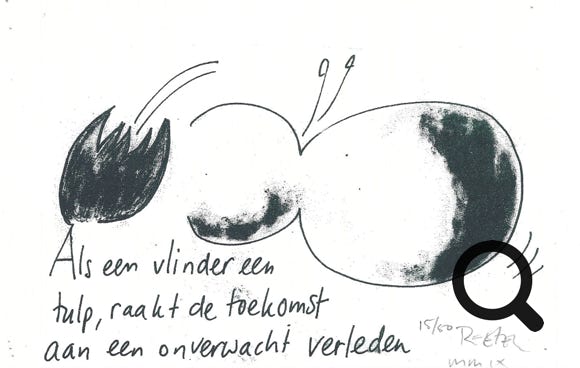 Als een vlinder een
tulp, raakt de toekomst
aan een onverwacht verleden
15/50
MMIX